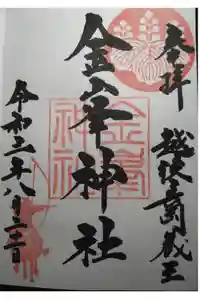 奉拝
越後長岡蔵王
金峯神社
金峯
神社
令和三年八月二十一日